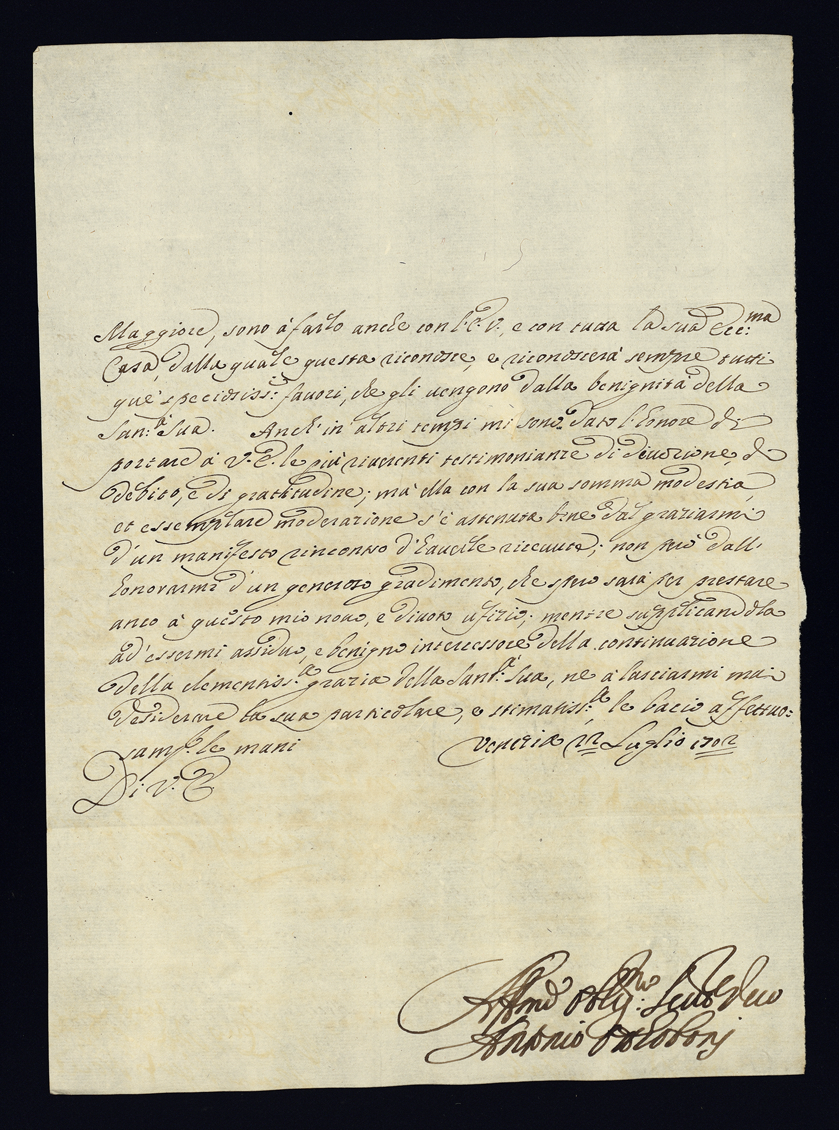 Maggiore, sono à farlo anche con l'E.V., e con tutta la sua Ecc:ma
Casa, dalla quale questa riconosce, e riconoscerà sempre tutti
què speciosiss:i favori, che gli vengono dalla benignità della
San:à Sua. Anch' in' altri tempi mi sono dato l'honore di
portare à V.E. le più riverenti testimonianze di divozione, di
debito, e di gratitudine; mà ella con la sua somma modestia,
et essemplare moderazione s'è astenuta bene dal graziarmi
d'un manifesto rincontro d'haverle ricevute; non però dall'
honorarmi d'un generoso gradimento, che spero sarà per prestare
anco à questo mio novo, e divoto ufizio; mentre supplicandola
ad'essermi assiduo, e benigno intercessore della continuazione
della clementiss:a grazia della Sant:à Sua, ne à lasciarmi mai
desiderare la sua particolare, e stimatiss:a, le bacio affettuo:
samte le mani Venezia 22 Luglio 1702
Di V. E.
Affmo Obligmo Serv:
Antonio Ottoboni